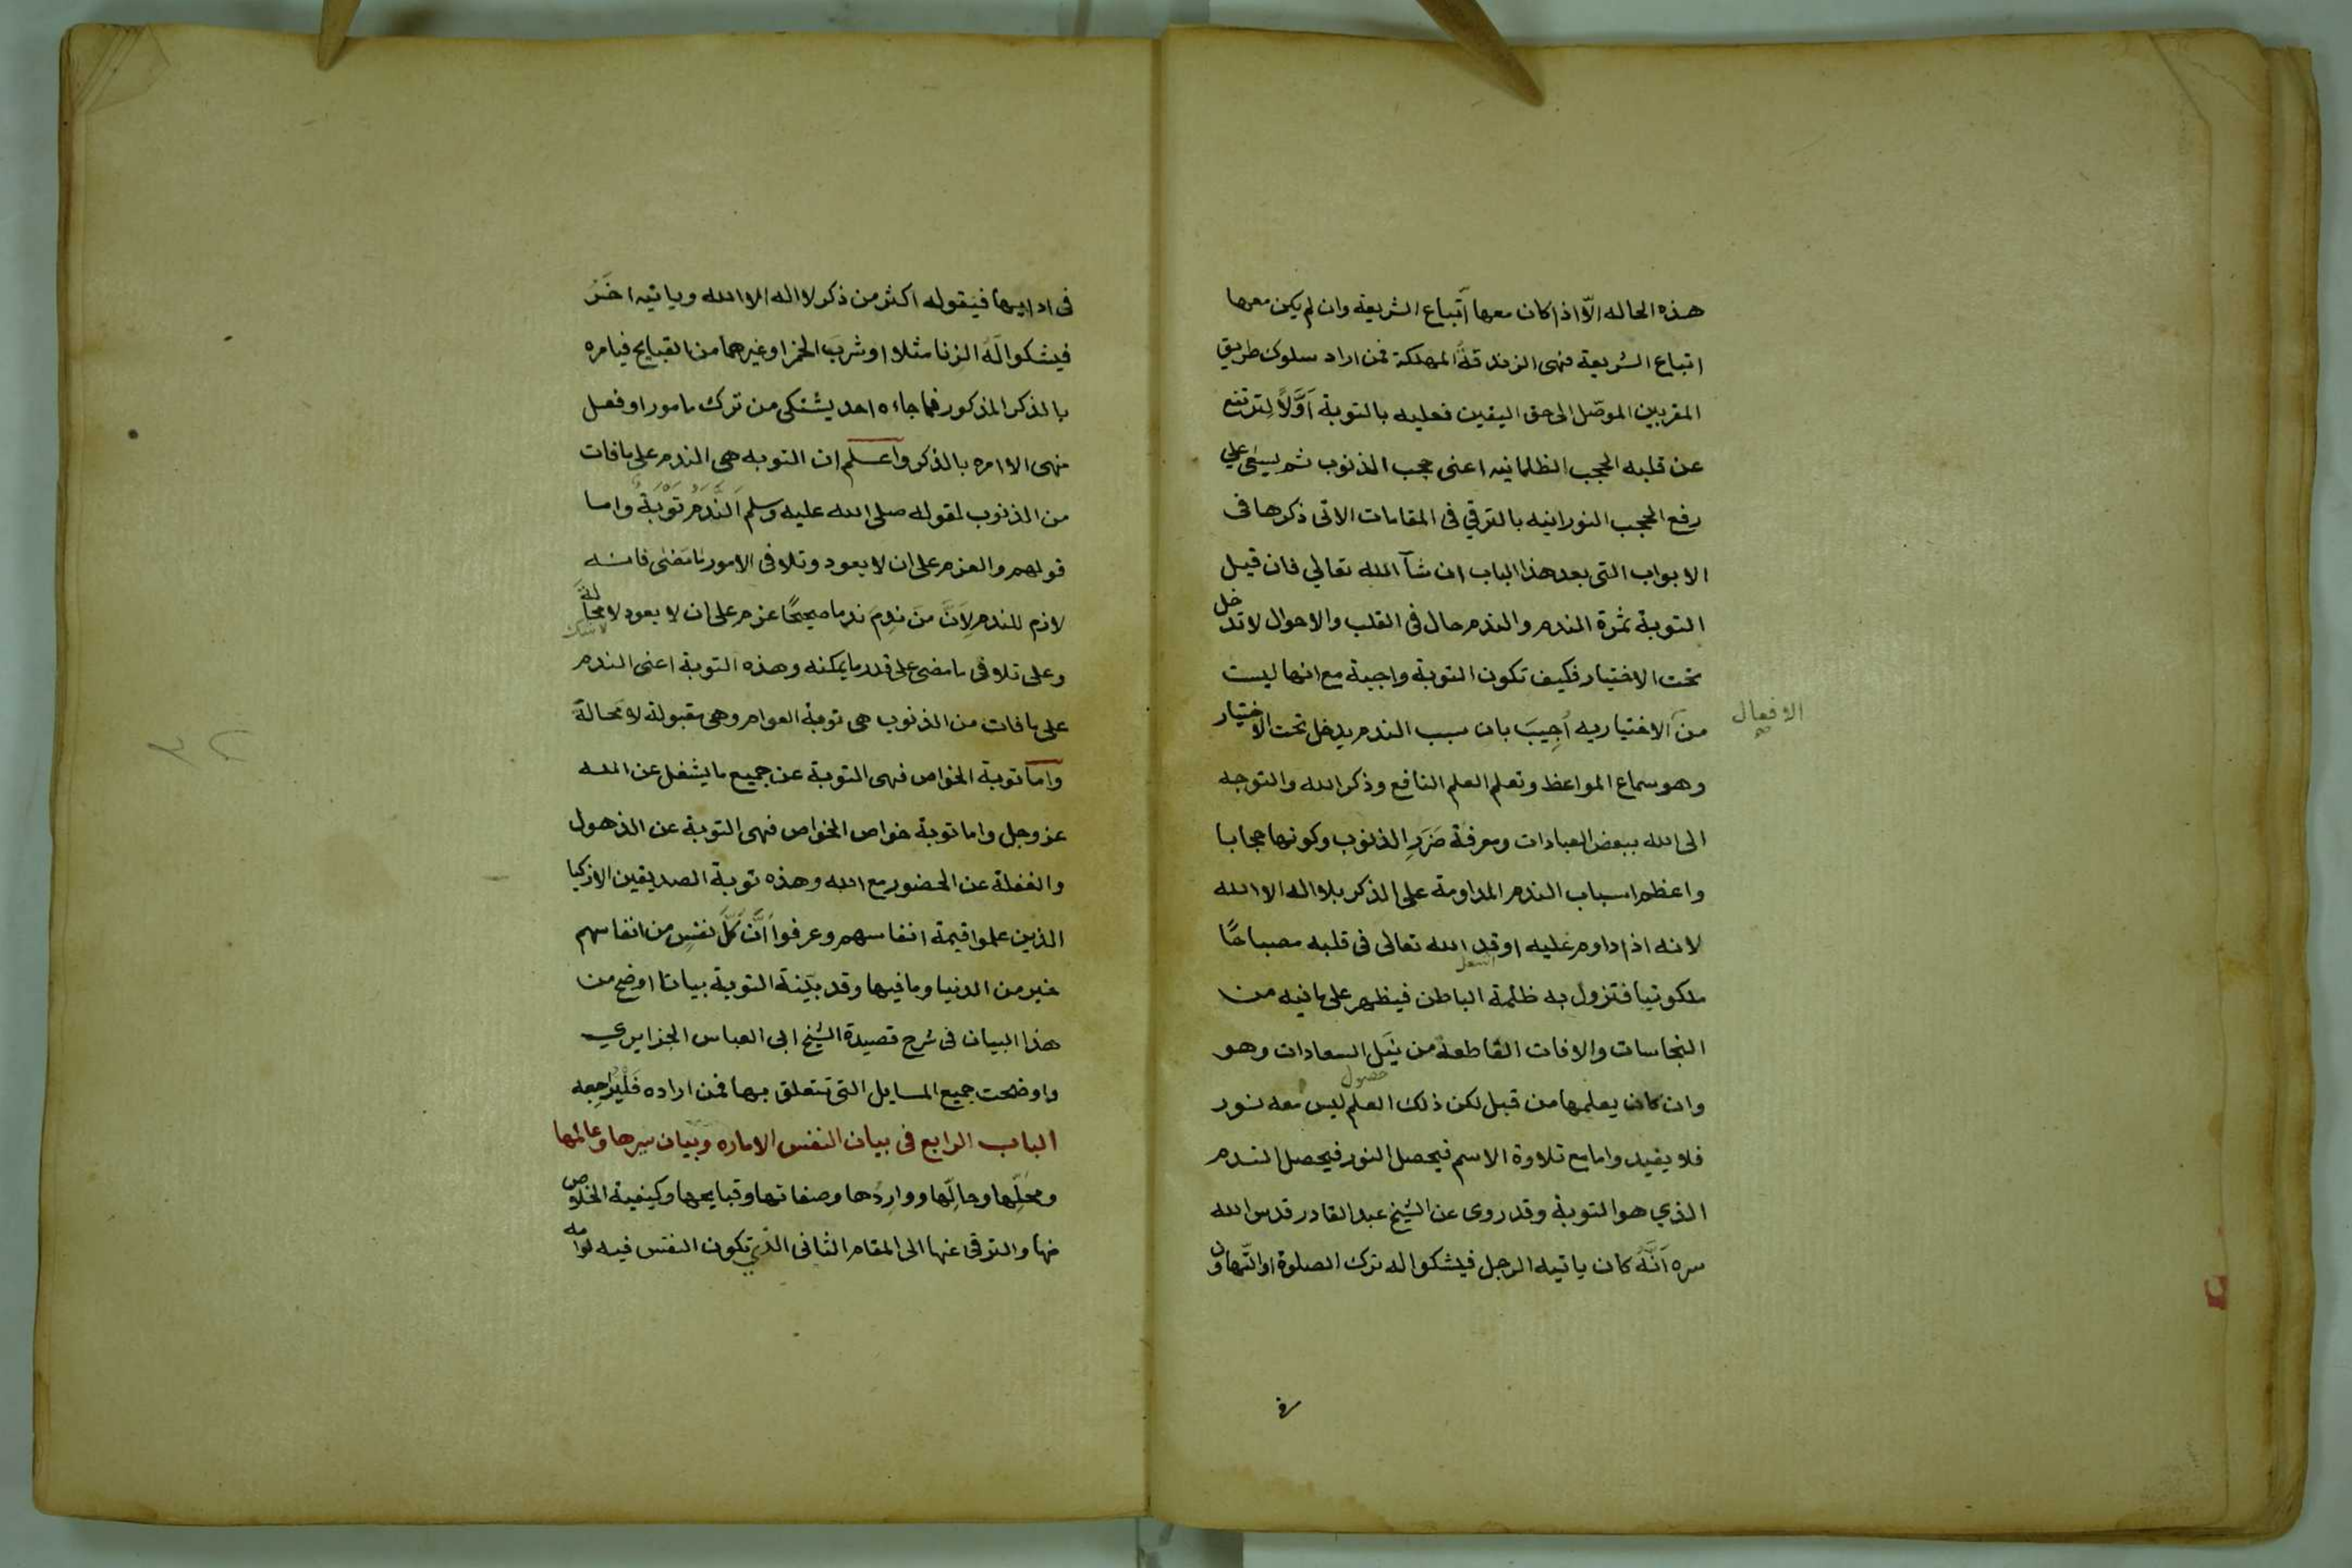 هذه الحاله الّا اذا كان معها اتّباع الشريعة وان لم يكن معها
اتباع الشريعة فهى الزندقةُ المهلكة فمن اراد سلوك طريق
المقربين الموصّل الى حق اليقين فعليه بالتوبة اَوَّلاً لترتفع
عن قلبه الحجب الظلمانيه اعنى حجب الذنوب ثم يسعى علي
رفع الحجب النورانيه بالترقي فى المقامات الاتى ذكرها فى
الابواب التى بعد هذا الباب ان شآ الله تعالي فان قيل
التوبة ثمرة الندم والندم حال فى القلب والاحوال لا تدخل
تحت الاختيار فكيف تكون التوبة واجبة مع انها ليست
من الاختياريه اُجِيبَ بان سبب الندم يدخل تحت الاختيار
الافعال
صح
وهو سماع المواعظ وتعلم العلم النافع وذكر الله والتوجه
الى الله ببعض العبادات ومعرفة ضَرَرِ الذنوب وكونها حجابا
واعظم اسباب الندم المداومة على الذكر بلا اله الا الله
لانه اذا داوم عليه اوقد الله تعالى فى قلبه مصباحًا
اشعل
ملكوتيا فتزول به ظلمة الباطن فيظهر على ما فيه من
النجاسات والافات القاطعة من نَيْل السعادات وهو
حصول
وان كان يعلمها من قبل لكن ذلك العلم ليس معه نور
فلا يفيد واما مع تلاوة الاسم فيحصل النور فيحصل الندم
الذي هو التوبة وقد روى عن الشيخ عبد القادر قدس الله
سره اَنَّهُ كان ياتيه الرجل فيشكوا له ترك الصلوة او التّهاون
فى
فى ادايها فيَقوله اكثر من ذكر لا اله الا الله وياتيه اخَرُ
فيشكوا لَهُ الزنا مثلا او شرب الخمر او غيرهما من القبايح فيامره
بالذكر المذكور فما جاءه احد يشتكى من ترك مامور او فعل
منهى الا امره بالذكر واعلم ان التوبه هى الندم على ما فات
من الذنوب لقوله صلى الله عليه وسلم اَلنَّدَمُ تَوْبَةٌ واما
قولهم والعزم على ان لا يعود وتلافى الامور ما مَضٰى فانه
لازم للندم لِاَنَّ مَنَ نِدِمَ ندما صحيحًا عزم على ان لا يعود لا محالَةَ
لا شك
وعلى تلافى ما مضى على قدر ما يمكنه وهذه التوبة اعنى الندم
على ما فات من الذنوب هى توبة العوام وهى مقبولة لا مَحالةَ
وامّا توبة الخواص فهى التوبة عن جميع ما يشغل عن الله
عز وجل واما توبة خواص الخواص فهى التوبة عن الذهول
والغفلة عن الحضور مع الله وهذه توبة الصديقين الازكيا
الذين علموا قيمة انفاسهم وعرفوا اَنَّ كُلَّ نفسٍ من انفاسهم
خير من الدنيا وما فيها وقد بيّنة التوبة بيانا اوضح من
هذا البيان فى شرح قصيدة الشيخ ابى العباس الجزايري
واوضحت جميع المسايل التى تتعلق بها فمن اراده فَلْيُرَاجِعه
الباب الرابع فى بيان النفس الاماره وبيان سيرها وعالمها
ومحَلِّها وحالِها وواردُها وصفاتها وقبايحها وكيفية الخلاوص
منها والترقى عنها الى المقام الثانى الذي تكون النفس فيه لوامه